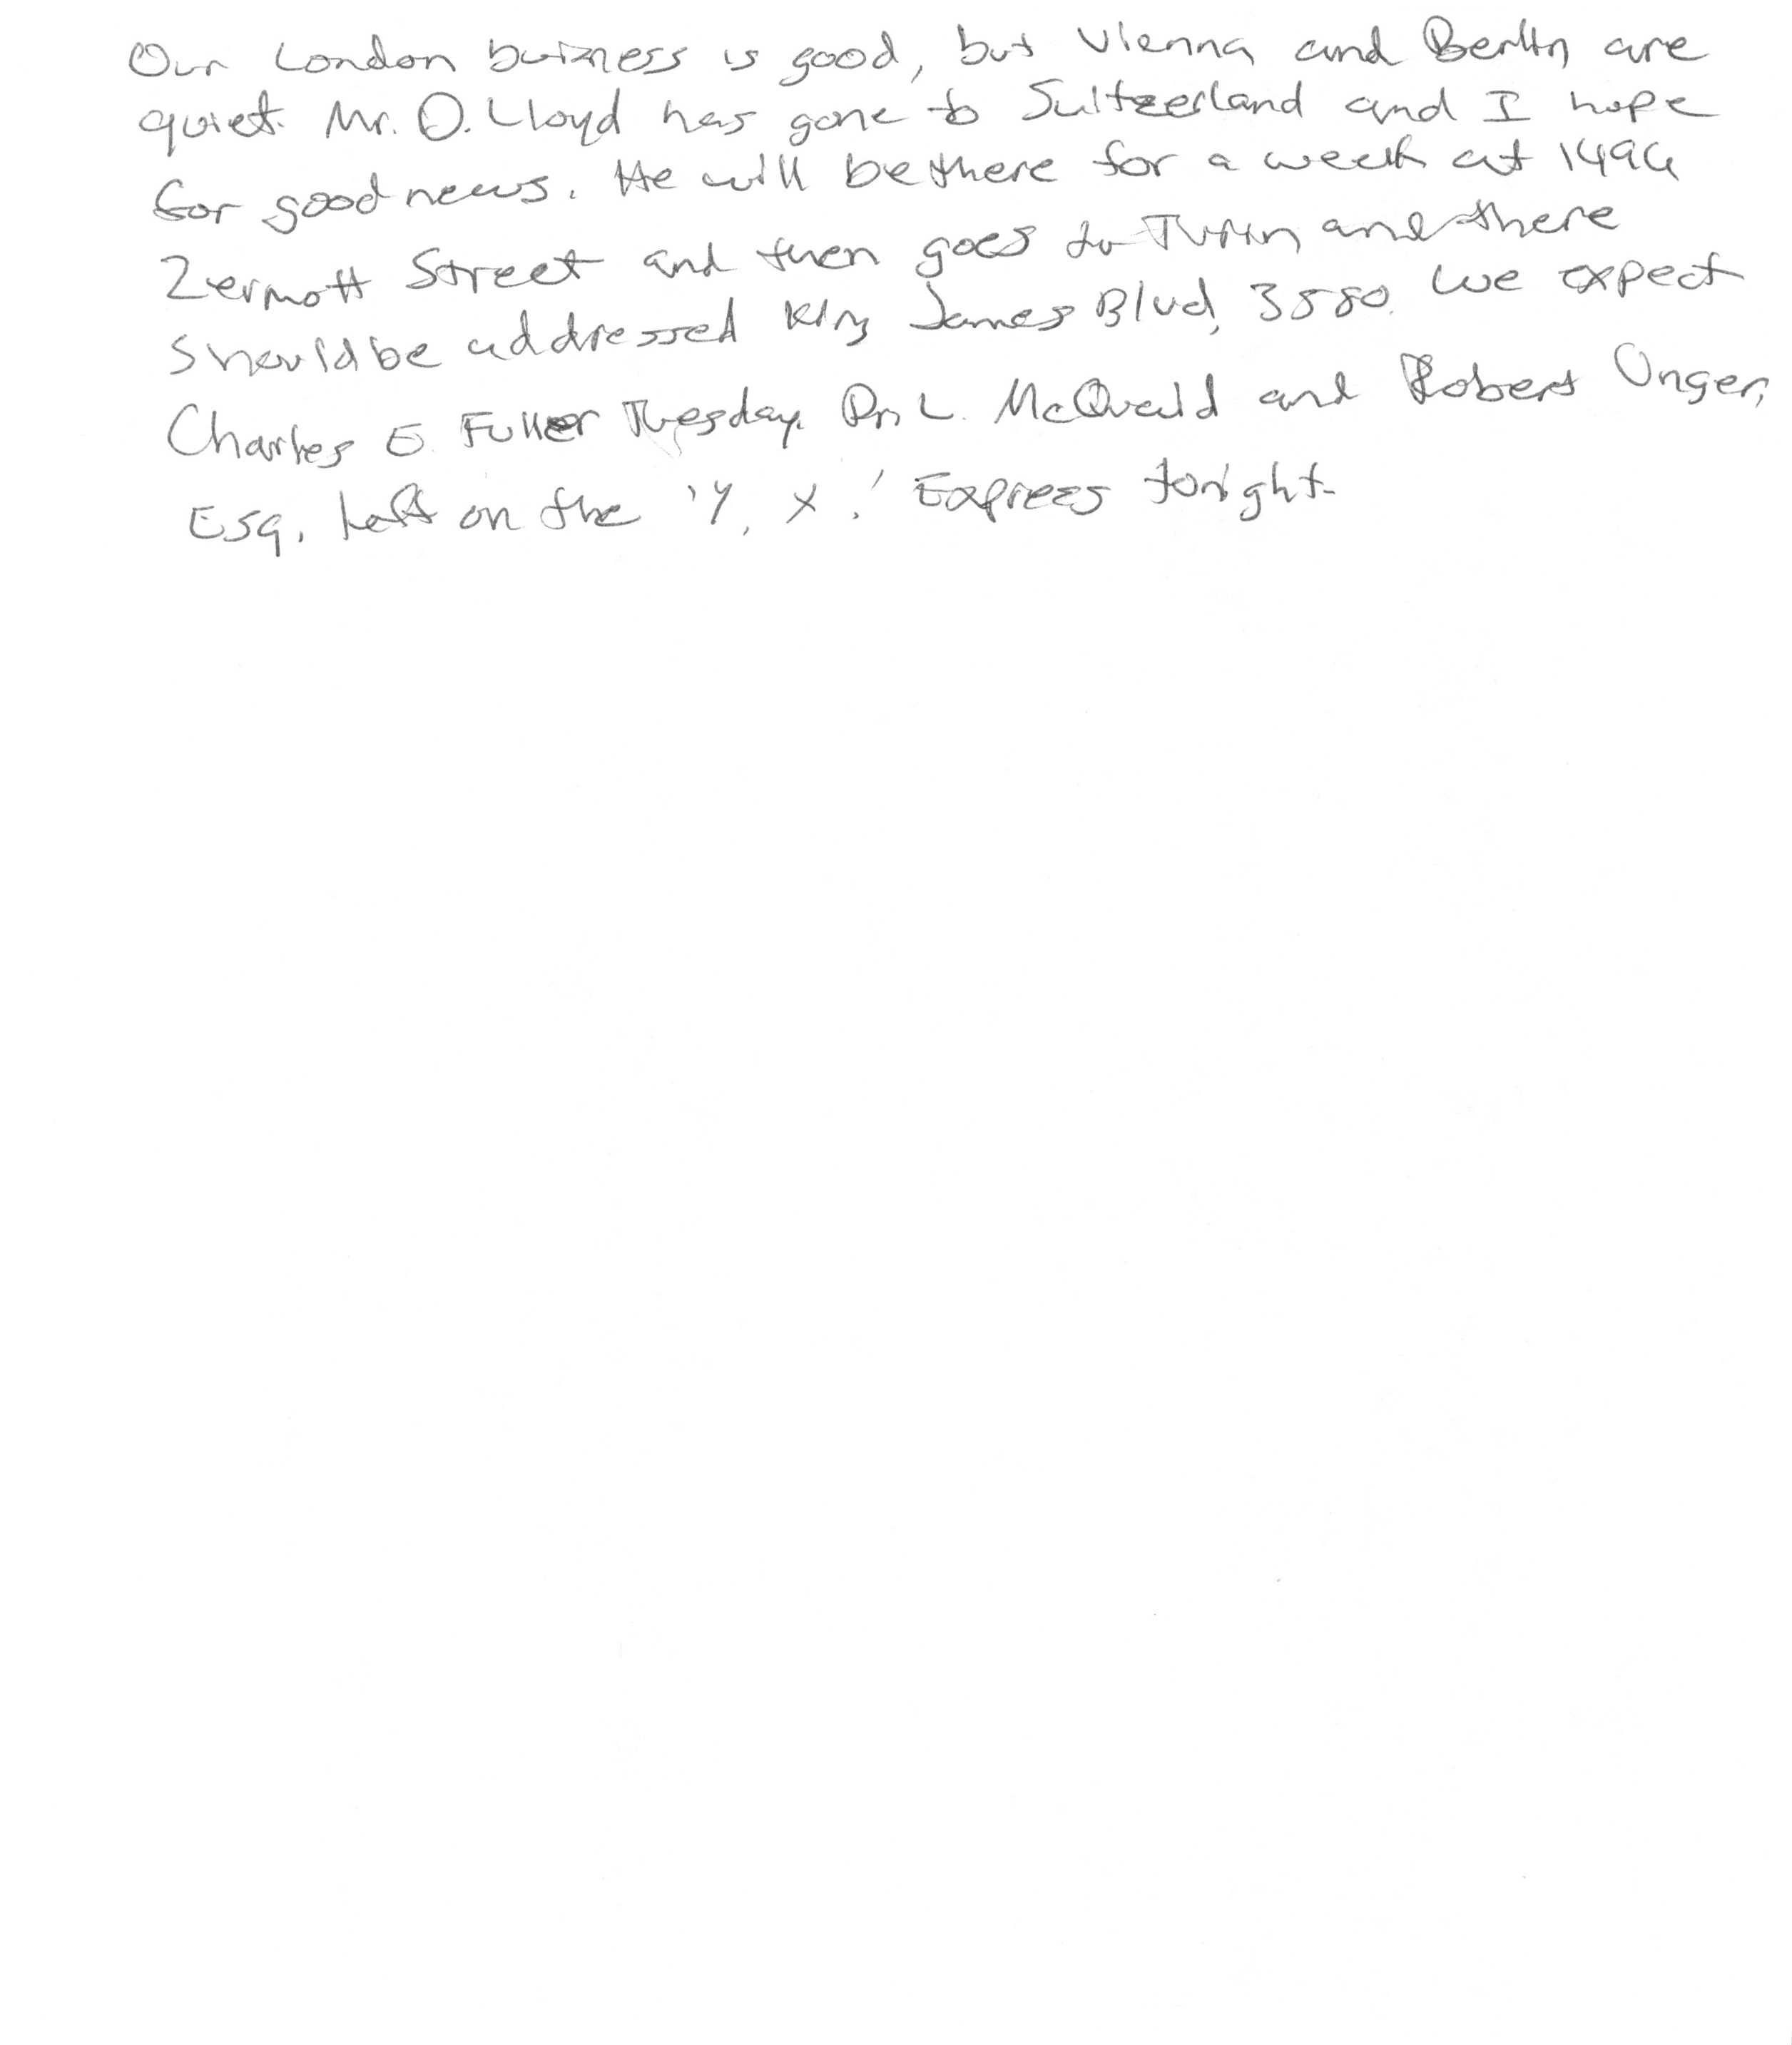 Our London buizness is good, but Vienna and Berlin are
quiet. Mr. D. Lloyd has gone to Suitzerland and I hope
for good news. He will be there for a week at 1496
Zermott Street and then goes to Turin and there
should be addressed King James Blvd, 3580. We expect
Charles E. Fuller Tuesday. Dr. L. McQuaid and Robert Unger,
Esq., left on the 'Y. X.' Express tonight.